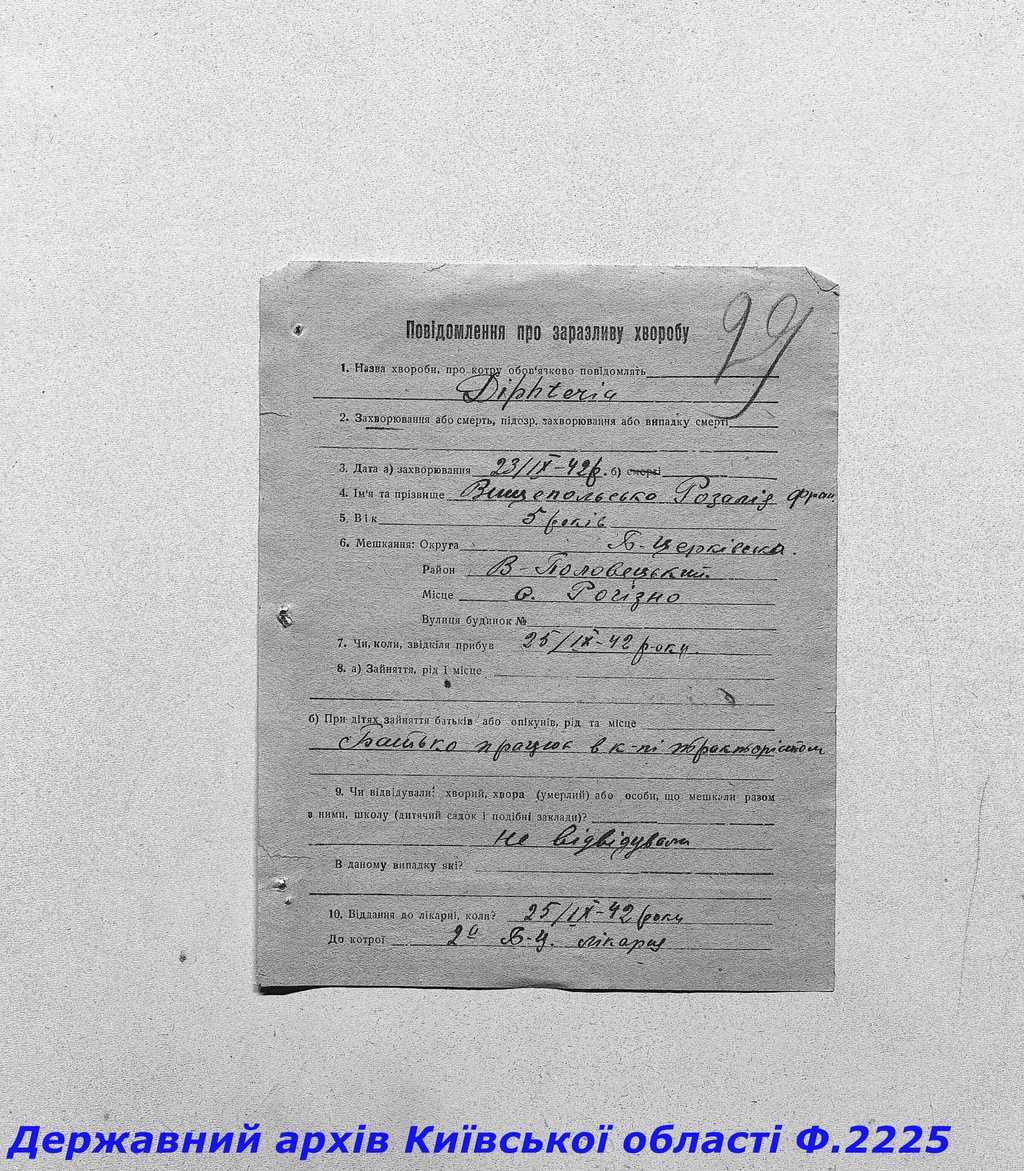 29
Повідомлення про заразливу хворобу
1. Назва хвороби, про котру обов'язково повідомлять
Diphteria
2. Захворювання або смерть, підозр. захворювання або випадку смерті
3. Дата а) захворювання 23/IX-42р. б) смерті
4. Ім'я та прізвище Вищепольсько Розалія Фран.
5. Вік 5 років
6. Мешкання: Округа Б-Церківська.
Район В-Половецький.
Місце с. Рогізно
Вулиця будинок №
7. Чи, коли, звідкіля прибув 25/IX-42 роки.
8. а) Зайняття, рід і місце
б) При дітях зайняття батьків або опікунів, рід та місце
Батько працює в к-пі трактористом
9. Чи відвідували: хворий, хвора (умерлий) або особи, що мешкали разом
з ними, школу (дитячий садок і подібні заклади)?
не відвідували
В даному випадку які?
10. Віддання до лікарні, коли? 25/IX-42 роки
До котрої 2а Б-Ц. лікарня
Державний архів Київської області Ф.2225